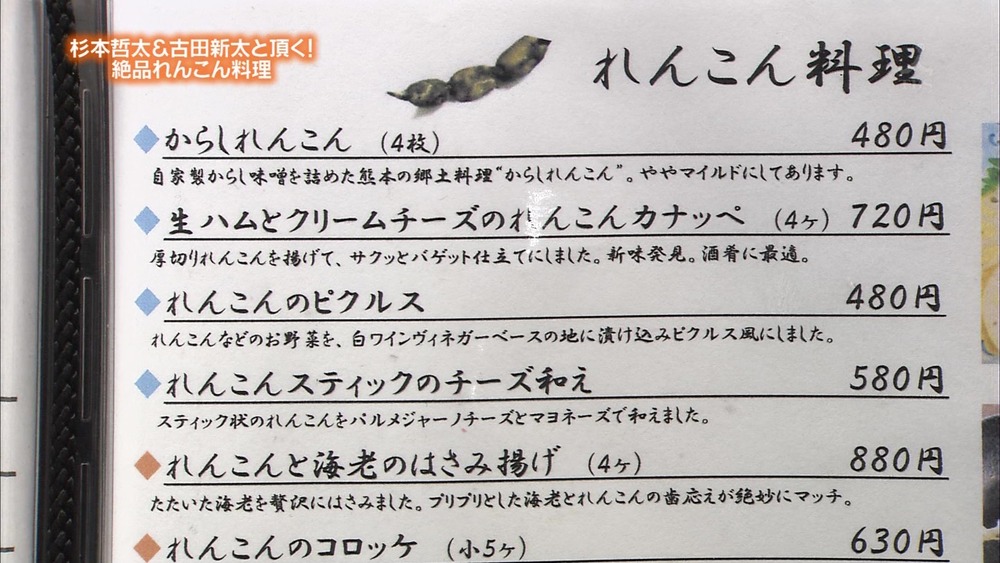 杉本哲太&古田新太と頂く!
絶品れんこん料理
れんこん料理
からしれんこん (4枚) 480円
自家製からし味噌を詰めた熊本の郷土料理“からしれんこん”。ややマイルドにしてあります。
生ハムとクリームチーズのれんこんカナッペ (4ヶ) 720円
厚切りれんこんを揚げて、サクッとバゲット仕立てにしました。新味発見。酒肴に最適。
れんこんのピクルス 480円
れんこんなどのお野菜を、白ワインヴィネガーベースの地に漬け込みピクルス風にしました。
れんこんスティックのチーズ和え 580円
スティック状のれんこんをパルメジャーノチーズとマヨネーズで和えました。
れんこんと海老のはさみ揚げ (4ヶ) 880円
たたいた海老を贅沢にはさみました。プリプリとした海老とれんこんの歯応えが絶妙にマッチ。
れんこんのコロッケ (小5ヶ) 630円